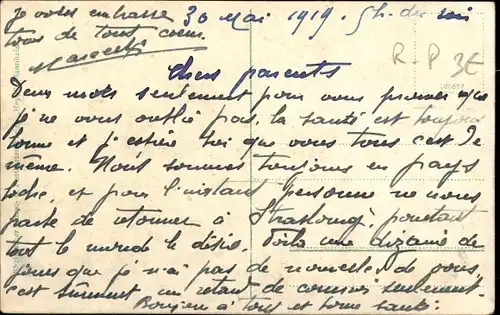 Je vous embrasse 30 Mai 1919. 5h. du soir
tous de tout coeur.
Marcel
R-P 3€
Chers parents
Deux mots seulement pour vous prouver que
je ne vous oublie pas, la santé est toujours
bonne et j'espère que vous tous c'est de
même. Nous sommes toujours en pays
, et pour l'instant personne ne nous
parle de retourner à Strasbourg, pourtant
tout le monde le désire. Voilà une dizaine de
jours que je n'ai pas de nouvelles de vous,
c'est sûrement un retard de courrier seulement.
Bonjour à tous et bonne santé.